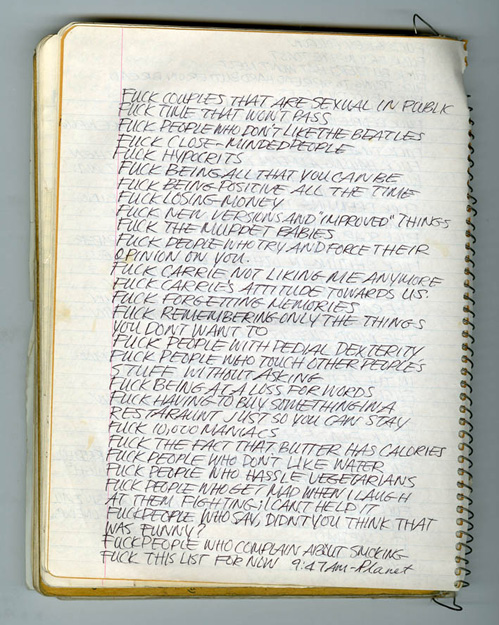 FUCK COUPLES THAT ARE SEXUAL IN PUBLIC
FUCK TIME THAT WON'T PASS
FUCK PEOPLE WHO DON'T LIKE THE BEATLES
FUCK CLOSE-MINDED PEOPLE
FUCK HYPOCRITS
FUCK BEING ALL THAT YOU CAN BE
FUCK BEING POSITIVE ALL THE TIME
FUCK LOSING MONEY
FUCK NEW VERSIONS AND "IMPROVED" THINGS
FUCK THE MUPPET BABIES
FUCK PEOPLE WHO TRY AND FORCE THEIR
OPINION ON YOU.
FUCK CARRIE NOT LIKING ME ANYMORE
FUCK CARRIE'S ATTITUDE TOWARDS US.
FUCK FORGETTING MEMORIES
FUCK REMEMBERING ONLY THE THINGS
YOU DON'T WANT TO
FUCK PEOPLE WITH PEDIAL DEXTERITY
FUCK PEOPLE WHO TOUCH OTHER PEOPLE'S
STUFF WITHOUT ASKING
FUCK BEING AT A LOSS FOR WORDS
FUCK HAVING TO BUY SOMETHING IN A
RESTARAUNT JUST SO YOU CAN STAY
FUCK 10,000 MANIACS
FUCK THE FACT THAT BUTTER HAS CALORIES
FUCK PEOPLE WHO DON'T LIKE WATER
FUCK PEOPLE WHO HASSLE VEGETARIANS
FUCK PEOPLE WHO GET MAD WHEN I LAUGH
AT THEM FIGHTING; I CAN'T HELP IT
FUCK PEOPLE WHO SAY, DIDN'T YOU THINK THAT
WAS FUNNY?
FUCK PEOPLE WHO COMPLAIN ABOUT SMOKING
FUCK THIS LIST FOR NOW 9:47AM-Planet